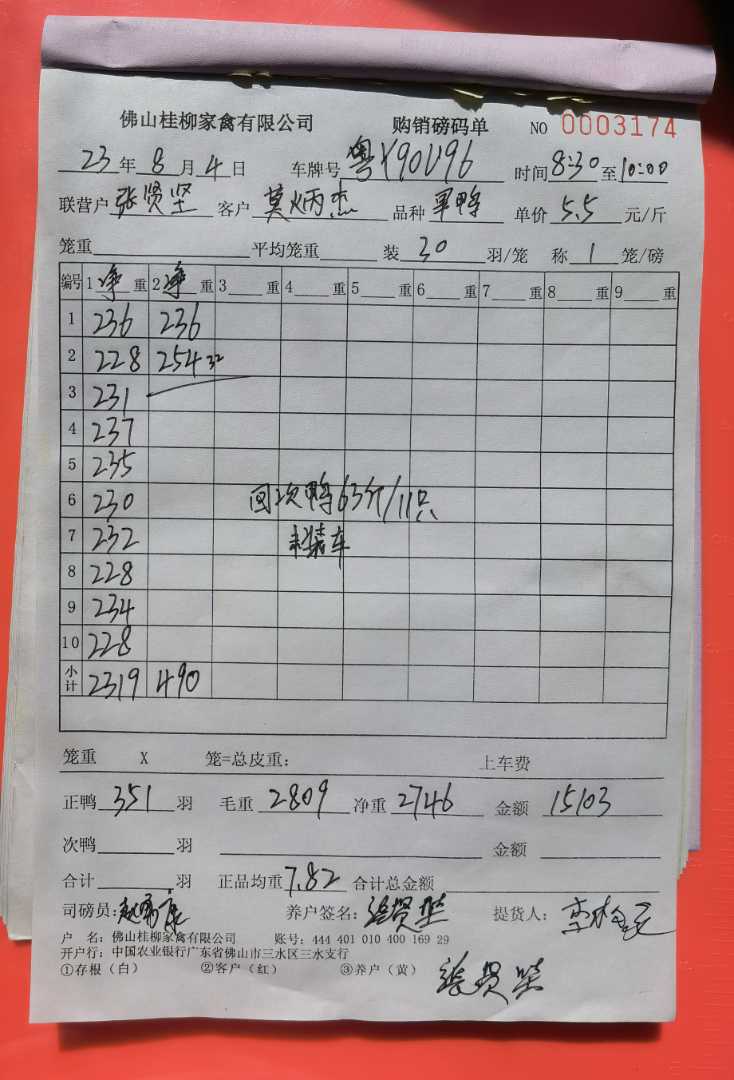 佛山桂柳家禽有限公司 购销磅码单 NO 0003174
23年8月4日 车牌号 粤Y90V96 时间8:30至10:00
联营户 张贤坚 客户 莫炳杰 品种 军鸭 单价 5.5 元/斤
笼重 平均笼重 装 30 羽/笼 称 1 笼/磅
编号 1净重 2净重 3重 4重 5重 6重 7重 8重 9重
1 236 236
2 228 254 32
3 231
4 237
5 235
6 230 回次鸭63斤/11只
7 232 未装车
8 228
9 234
10 228
小计 2319 490
笼重 X 笼=总皮重: 上车费
正鸭 351 羽 毛重 2809 净重 2746 金额 15103
次鸭 羽 金额
合计 羽 正品均重 7.82 合计总金额
司磅员: 养户签名: 张贤坚 提货人:
户 名: 佛山桂柳家禽有限公司 账号: 444 401 010 400 169 29
开户行: 中国农业银行广东省佛山市三水区三水支行
①存根（白） ②客户（红） ③养户（黄） 张贤坚